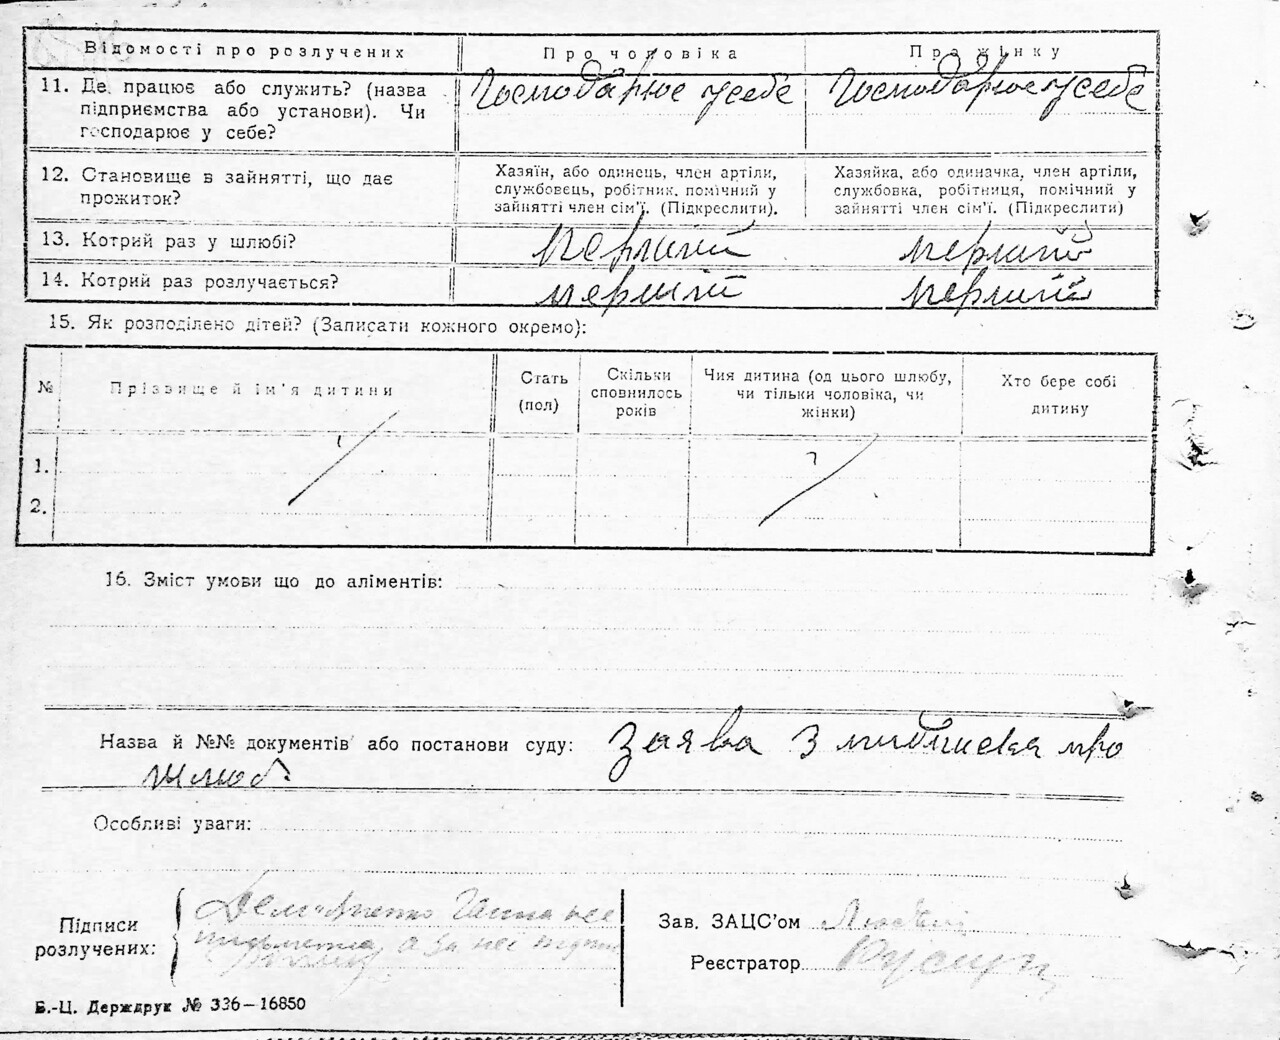 Відомості про розлучених
Про чоловіка
Про жінку
11. Де працює або служить? (назва
підприємства або установи). Чи
господарює у себе?
Господарює у себе
Господарює у себе
12. Становище в зайнятті, що дає
прожиток?
Хазяїн, або одинець, член артілі,
службовець, робітник, помічний у
зайнятті член сім'ї. (Підкреслити).
Хазяйка, або одиначка, член артіли,
службовка, робітниця, помічний у
зайнятті член сім'ї. (Підкреслити)
13. Котрий раз у шлюбі?
перший
перший
14. Котрий раз розлучається?
перший
перший
15. Як розподілено дітей? (Записати кожного окремо):
№
Прізвище й ім'я дитини
Стать
(пол)
Скільки
сповнилось
років
Чия дитина (од цього шлюбу,
чи тільки чоловіка, чи
жінки)
Хто бере собі
дитину
1.
2.
16. Зміст умови що до аліментів:
Назва й №№ документів або постанови суду: Заява з про
шлюб
Особливі уваги:
Підписи
розлучених:
Ганна не
а за неї
Зав. ЗАЦС'ом
Реєстратор
Б.-Ц. Держдрук № 336—16850